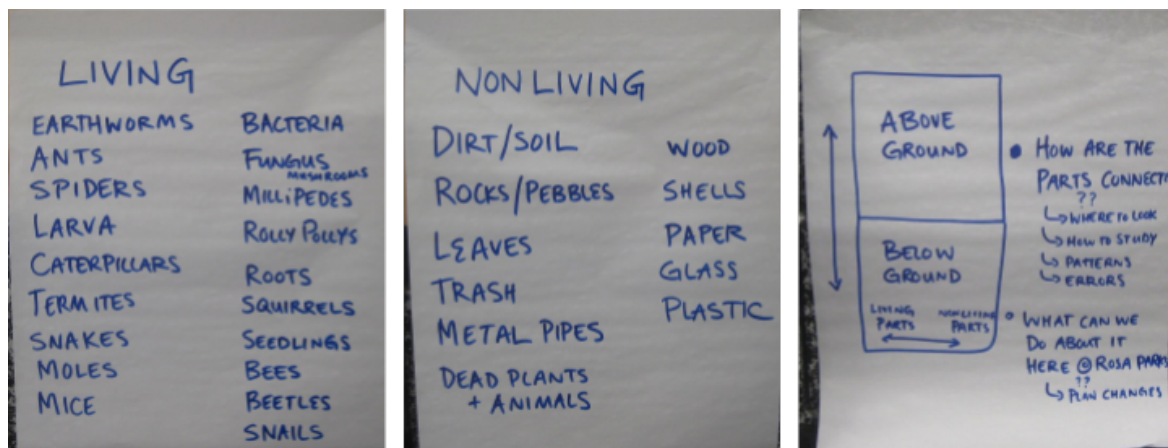 LIVING
EARTHWORMS
ANTS
SPIDERS
LARVA
CATERPILLARS
TERMITES
SNAKES
MOLES
MICE
BACTERIA
FUNGUS
MUSHROOMS
MILLIPEDES
ROLLY POLLYS
ROOTS
SQUIRRELS
SEEDLINGS
BEES
BEETLES
SNAILS
NONLIVING
DIRT/SOIL
ROCKS/PEBBLES
LEAVES
TRASH
METAL PIPES
DEAD PLANTS
+ ANIMALS
WOOD
SHELLS
PAPER
GLASS
PLASTIC
ABOVE
GROUND
BELOW
GROUND
LIVING
PARTS
NONLIVING
PARTS
• HOW ARE THE
PARTS CONNECT
??
↳ WHERE TO LOOK
↳ HOW TO STUDY
↳ PATTERNS
↳ ERRORS
• WHAT CAN WE
DO ABOUT IT
HERE @ ROSA PARKS
??
↳ PLAN CHANGES